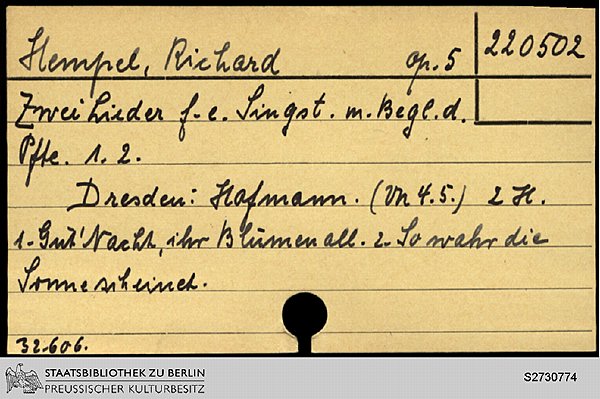 Hempel, Richard op. 5 220502
Zwei Lieder f. e. Singst. m. Begl. d.
Pfte. 1. 2.
Dresden: Hofmann. (VN 4.5.) 2 H.
1. Gut' Nacht, ihr Blumen all. 2. So wahr die
Sonne scheinet.
32.606.
STAATSBIBLIOTHEK ZU BERLIN
PREUSSISCHER KULTURBESITZ
S2730774